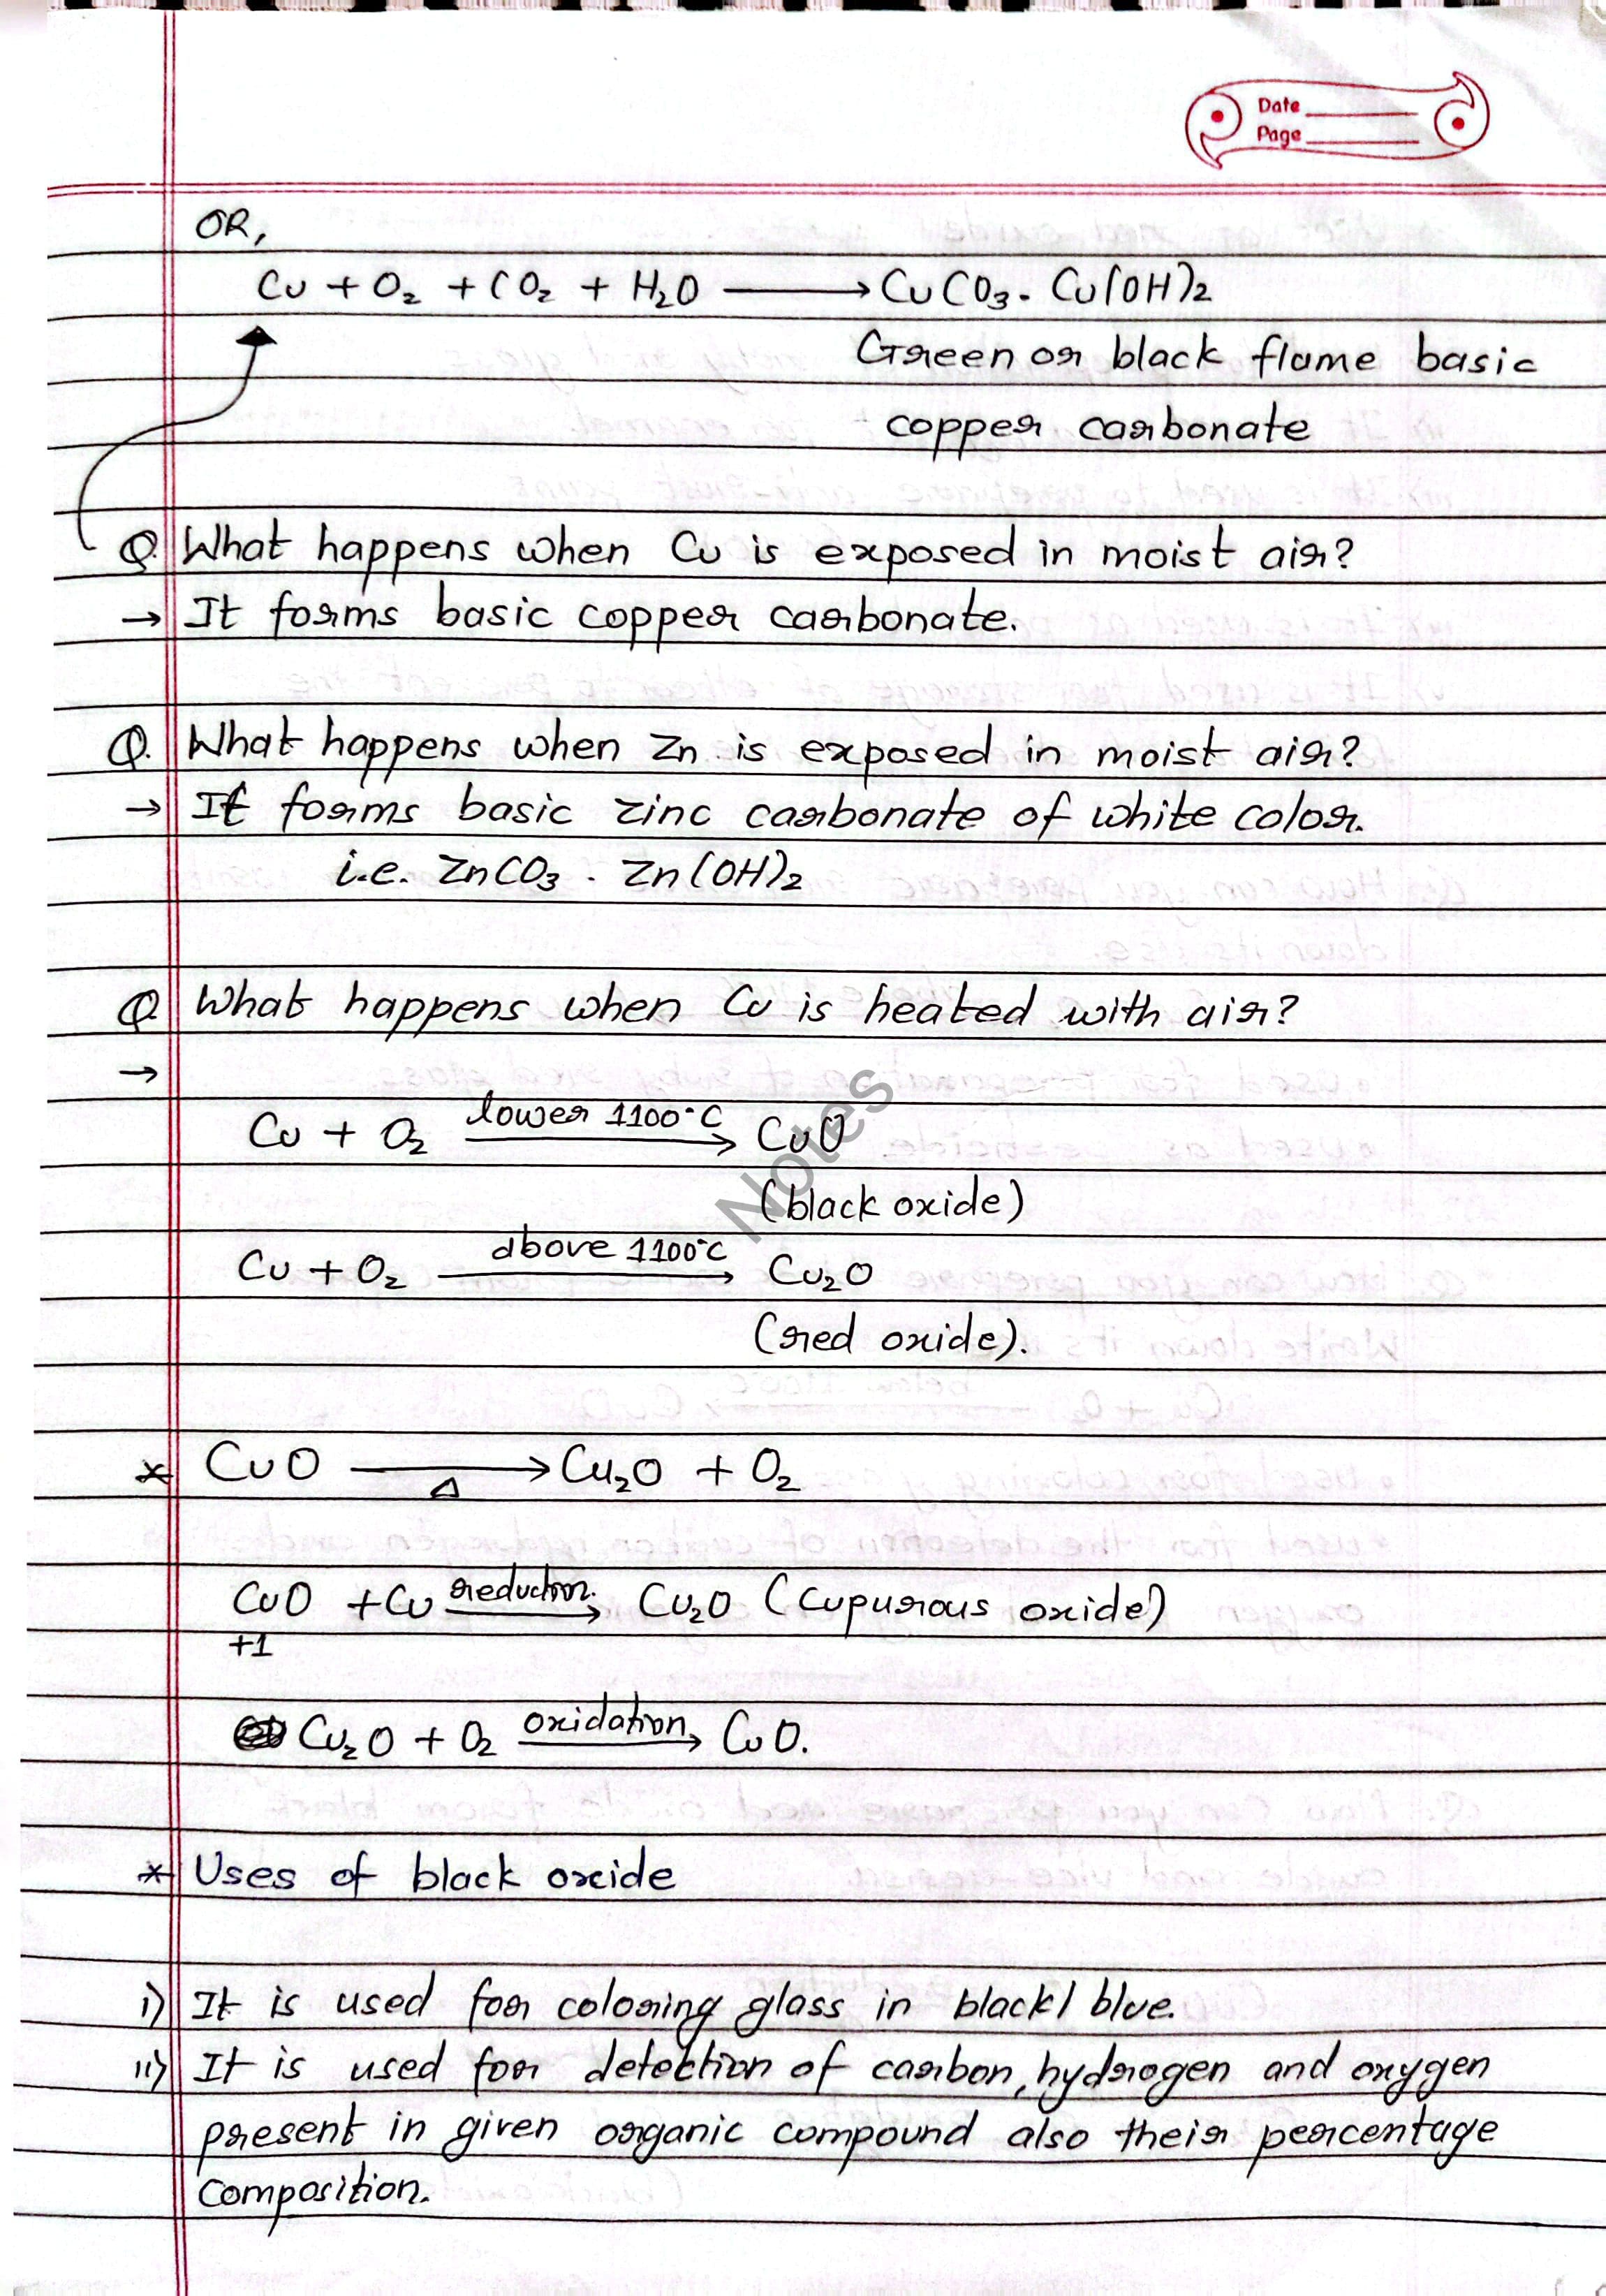 Date
Page
OR,
Cu + O₂ + CO₂ + H₂O ⟶ CuCO₃. Cu(OH)₂
Green or black flume basic
copper carbonate
Q. What happens when Cu is exposed in moist air?
→ It forms basic copper carbonate.
Q. What happens when Zn is exposed in moist air?
→ It forms basic zinc carbonate of white color.
i.e. ZnCO₃ . Zn(OH)₂
Q What happens when Cu is heated with air?
→
lower 1100°C
Cu + O₂ ⟶ CuO
(black oxide)
above 1100°C
Cu + O₂ ⟶ Cu₂O
(red oxide).
Notes
* CuO ⟶ Cu₂O + O₂
Δ
reduction.
CuO + Cu ⟶ Cu₂O (Cupurous oxide)
+1
oxidation
Cu₂O + O₂ ⟶ CuO.
* Uses of black oxide
i) It is used for coloring glass in black/blue.
ii) It is used for detection of carbon, hydrogen and oxygen
present in given organic compound also their percentage
composition.